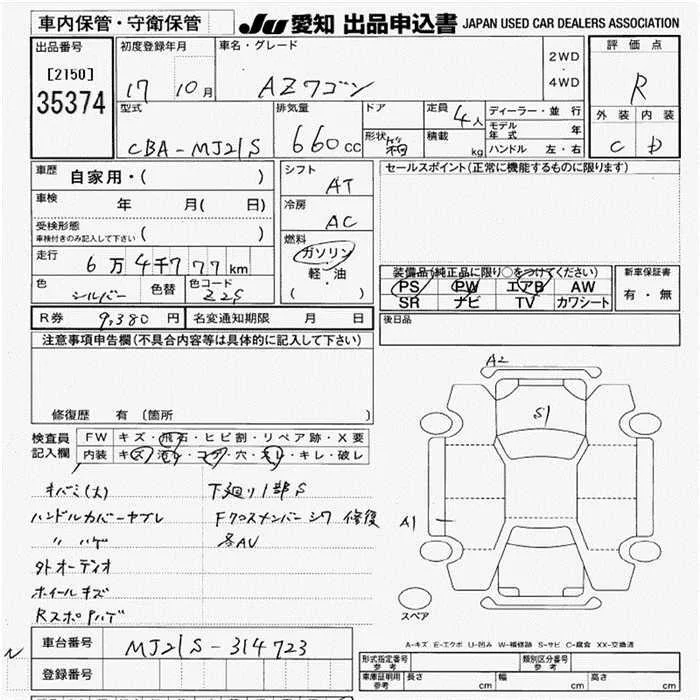 車内保管・守衛保管 JU 愛知 出品申込書 JAPAN USED CAR DEALERS ASSOCIATION
出品番号 初度登録年月 車名・グレード 2WD・4WD 評価点
[2150] 17 10月 AZワゴン R
35374
型式 排気量 ドア 定員 4人 ディーラー・並行 外装 内装
モデル年式 年
CBA-MJ21S 660cc 形状 箱 積載 kg ハンドル 左・右 C D
車歴 自家用・( ) シフト AT セールスポイント(正常に機能するものに限ります)
車検 年 月( 日) 冷房 AC
受検形態
車検付きのみ記入して下さい ( )
燃料 ガソリン
軽・油
( )
走行 6万4千777km
装備品(純正品に限り○をつけてください) 新車保証書
色 シルバー 色替 色コード Z2S
PS PW エアB AW 有・無
SR ナビ TV カワシート
R券 9,380円 名変通知期限 月 日 後日品
注意事項申告欄(不具合内容等は具体的に記入して下さい)
修復歴 有 [箇所 ]
A2
S1
A1
検査員記入欄 FW キズ・飛石・ヒビ割・リペア跡・X要
内装 キズ・汚レ・コゲ・穴・スレ・キレ・破レ
キバミ(大) 下廻り1部S
ハンドルカバーヤブレ Fクロスメンバーシワ 修復
〃 ハゲ 各AU
外オーディオ
ホイールキズ
スペア
車台番号 MJ21S-314723
登録番号
A-キズ E-エクボ U-凹み W-補修跡 S-サビ C-腐食 XX-交換済
形式指定番号 参考 類別区分番号 参考
車庫証明用 参考 長さ cm 幅 cm 高さ cm